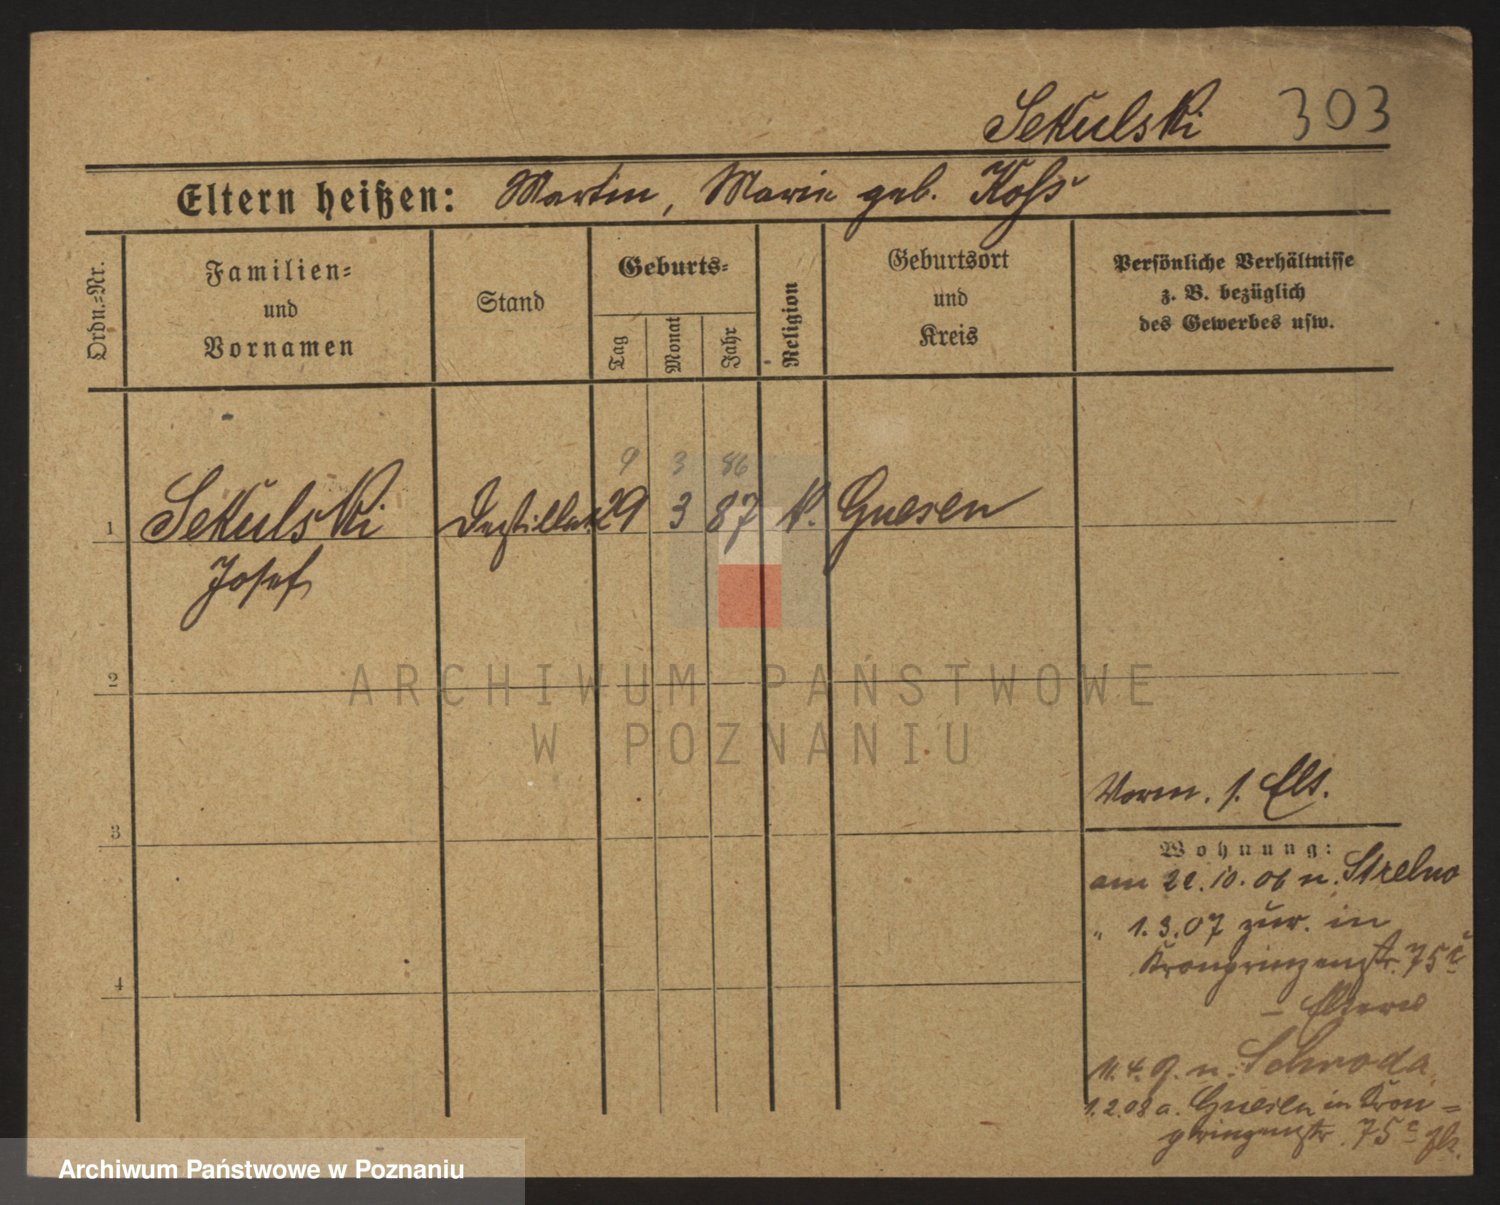 Sekulski 303
Eltern heißen: Martin, Marie geb. Koss
Ordn.=Nr.
Familien=
und
Vornamen
Stand
Geburts=
Tag
Monat
Jahr
Religion
Geburtsort
und
Kreis
Persönliche Verhältnisse
z. B. bezüglich
des Gewerbes usw.
9 3 86
1 Sekulski Destillat. 29 3 87 k. Gnesen
Josef
2
3
4
Vorm. s. Elt.
Wohnung:
am 10. 06 n. Strelno
" 1. 3. 07 zur. in
Kronprinzenstr. 75
– Eltern
11. 4. 9. n. Schroda
1. 2. 08 a. Gnesen in Kron-
prinzenstr. 75
ARCHIWUM PAŃSTWOWE
W POZNANIU
Archiwum Państwowe w Poznaniu